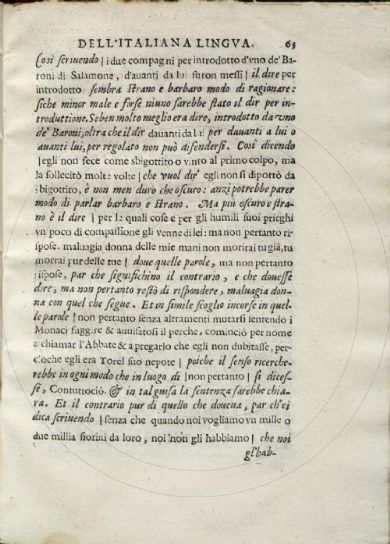 DELL'ITALIANA LINGVA. 63
Cosi scriuendo | i due compagni per introdotto d'vno de' Ba-
roni di Salamone, d'auanti da lui furon messi | il dire per
introdotto sembra strano e barbaro modo di ragionare:
siche minor male e forse niuno sarebbe stato il dir per in-
troduttione. Se ben molto meglio era dire, introdotto da vno
de' Baroni, oltra che il dir dauanti da lui per dauanti a lui o
auanti lui, per regolato non può difendersi. Cosi dicendo
| egli non fece come sbigottito o vinto al primo colpo, ma
la sollecitò molte volte | che vuol dir egli non si diportò da
sbigottito, è non men duro che oscuro: anzi potrebbe parer
modo di parlar barbaro e strano. Ma piu oscuro e stra-
no è il dire | per le quali cose e per gli humili suoi prieghi
vn poco di compassione gli venne di lei: ma non pertanto ri-
spose. maluagia donna delle mie mani non morirai tu già, tu
morrai pur delle tue | doue quelle parole, ma non pertanto
rispose, par che significhino il contrario, e che douesse
dire, ma non pertanto restò di rispondere, maluagia don-
na con quel che segue. Et in simile scoglio incorse in quel-
le parole | non pertanto senza altramenti mutarsi sentendo i
Monaci fuggire & auuisatosi il perche, cominciò per nome
a chiamar l'Abbate & a pregarlo che egli non dubitasse, per-
cioche egli era Torel suo nepote | poiche il senso ricerche-
rebbe in ogni modo che in luogo di | non pertanto | si dices-
se, Contuttociò. & in tal guisa la sentenza sarebbe chia-
ra. Et il contrario pur di quello che doueua, par ch'ei
dica scriuendo | senza che quando noi vogliamo vn mille o
due millia fiorini da loro, noi non gli habbiamo | che noi
gl'hab-